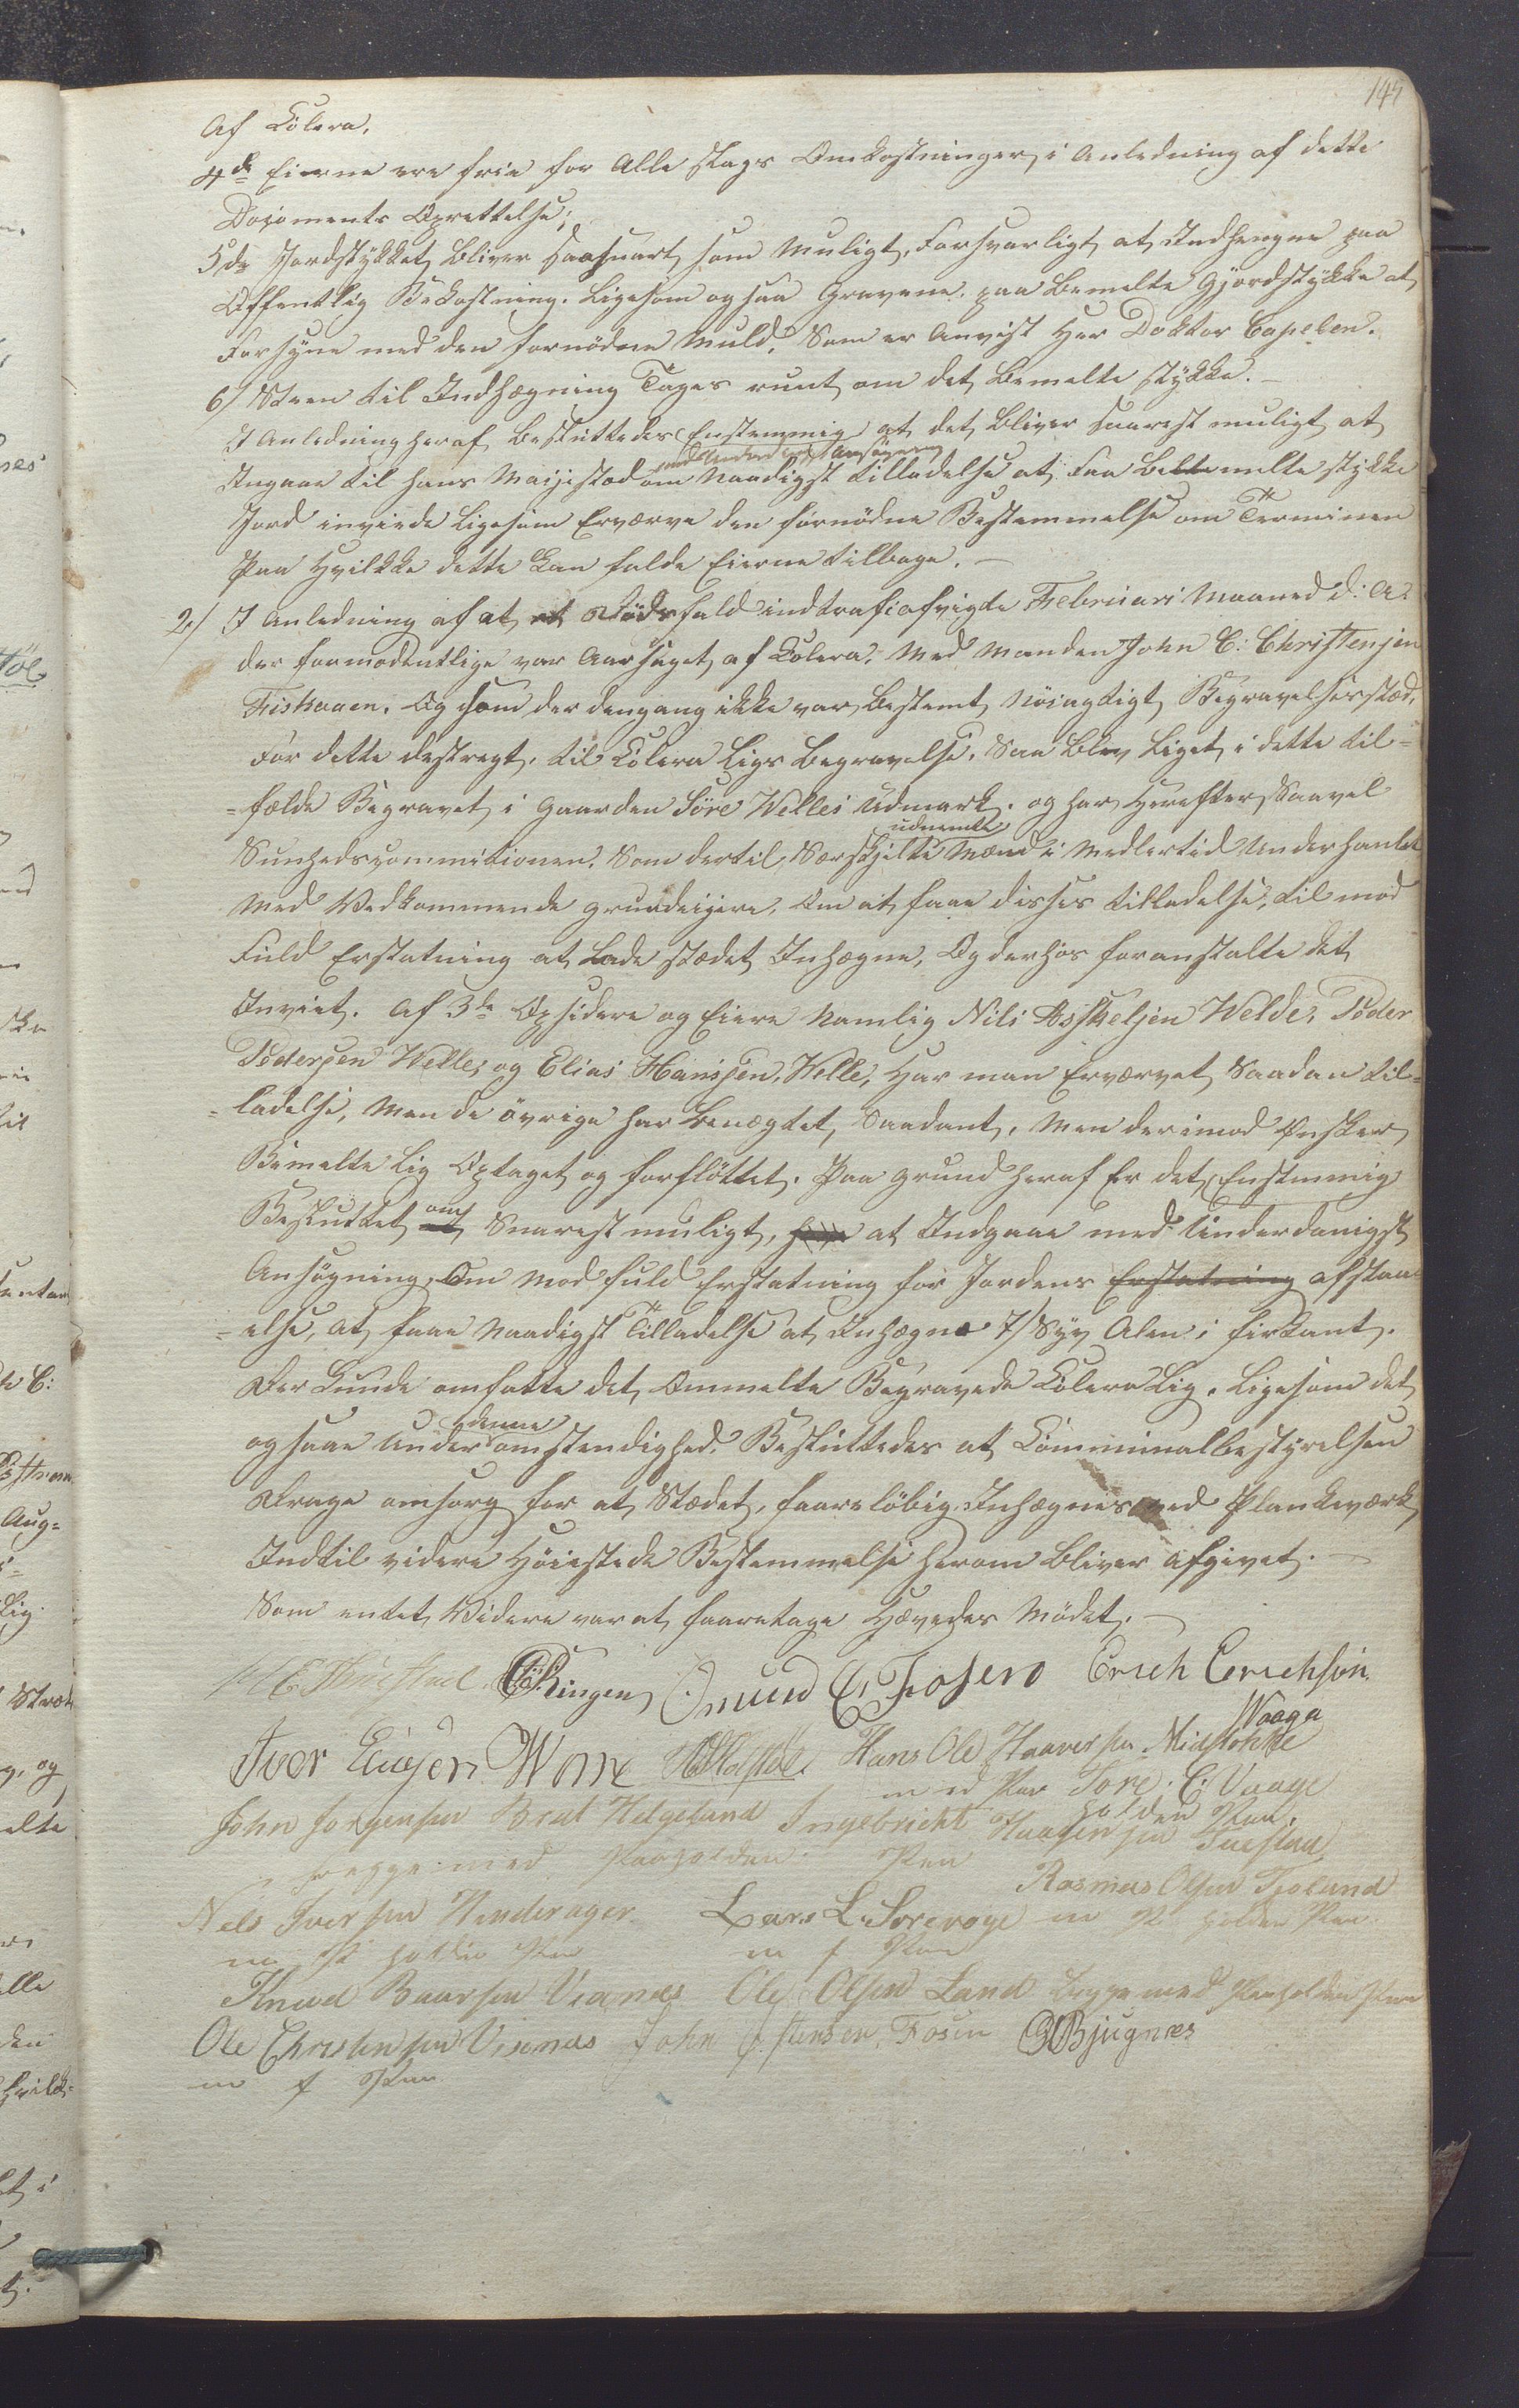 149
Af Colera.
4de Eierne ere frie for Alle slags Omkostninger, i Anledning af dette
Docoments Oprettelse;
5de Jordstykket bliver saasnart som Muligt, Forsvarligt at Indhengne paa
Offentlig Bekostning. Ligesom ogsaa Gravene, paa bemelte Gjordstykke at
Forsyne med den fornödne Muld, Som er Anvist Her Doktor Capelen.
6/ Steen til Indhægning Tages runt om det bemelte stykke. –
I Anledning heraf besluttedes Enstemmig at det bliver snarest muligt at
Ansögning
Ingaae til hans Majestæd om Naadigst tilladelse at faa bemelte stykke
Jord inviede ligesom Erverve den fornödne Bestemmelse om Terminen
Paa Hvilke dette kan falde Eierne tilbage. –
2./ I Anledning af at et dödsfald indtraf i afvigte Februari Maaned d: A:
der formodentlige var Aarsaget af Colera, Med Manden John C: Christensen
Fishaaen. Og som der dengang ikke var bestemt nöiagtigt Begravelsesstæd,
For dette destregt, til Colera Ligs Begravelse, Saa blev Liget i dette til=
=fælde Begravet i Gaarden Söre Welles Udmark. og har Herefter Saavel
udnemte
Sunhedscommitionen, Som dertil Særskjilte Mænd i Medlertid Underhanlet
Med Vedkommende grundeigere, Om at faae disses tilladelse, til mod
Fuld Erstatning at Lade stædet Inhægne, Og derhos foranstalte det
Inviet. Af 3de Opsidere og Eiere Namlig Nils Asskeljen Welde, Peder
Pedersen Welle, og Elias Hansjen, Welle, Har man Erværvet Saadan til=
=ladelse, Men de övrige har benægtet, Saadant, Men derimod Ønsker
Bemelte Lig Optaget og forflöttet. Paa grund heraf Er det Enstemmig
om
Besluttet at Snarest muligt, at Indgaae med Underdanigst
Ansögning, Om Mod fuld Erstatning for Jordens Erstatning afstaa
=else, at faae Naadigst Tilladelse at Inhægne 7/ Syv Alen i firkant.
Der Kunde omfatte det Ommelte Begravede Colera Lig. Ligesom det
denne
ogsaae under omstendighed, Besluttedes at Communalbestyrelsen
Drage omsorg for at Stædet, faareløbig Inhægnes med Plankeværk
Indtil videre Höiestede Bestemmelse herom bliver afgivet. –
Som entet Videre var at faaretage Hævedes Mödet. –
Omund C. Fosen Erich Erichsön
Waaga
Iver Hans Ole Haaversen Midstokke
m e d Pen Tore. C. Vaage
John Jorgensen Brat Helgeland Ingebricht Haagensen
holden Pen.
begge med Paaholden Pen
Rasmus Olsen Tjoland
Nels Iversen Hinderager Lars L. Sorevoge m P holden Pen
m P holden Pen m f Pen
Knud Baarsen Visnæs Ole Olsen Land begge med Paaholden Pen
Ole Christensen Visnæs John Fosen Bjugnæs
m f Pen